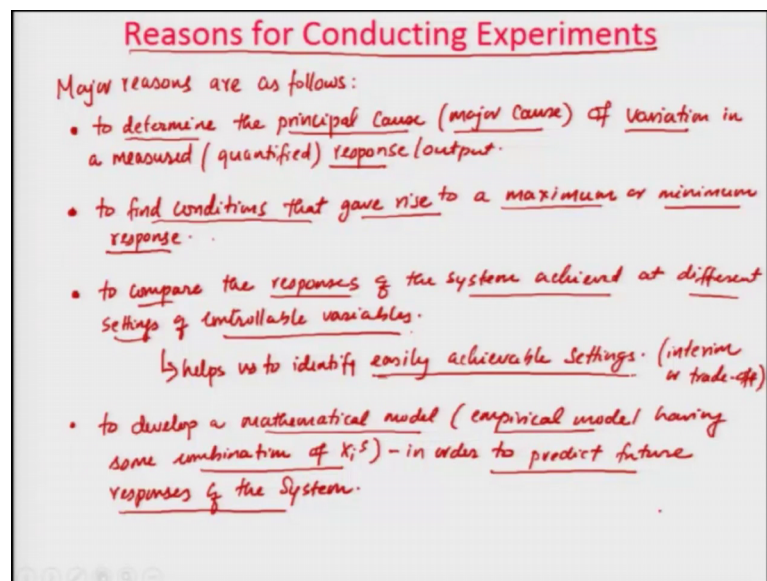 Reasons for Conducting Experiments
Major reasons are as follows:
• to determine the principal cause (major cause) of variation in
a measured (quantified) response/output.
• to find conditions that gave rise to a maximum or minimum
response.
• to compare the responses of the system achieved at different
settings of controllable variables.
↳ helps us to identify easily achievable settings. (interim
or trade-off)
• to develop a mathematical model (empirical model having
some combination of Xi's) - in order to predict future
responses of the system.